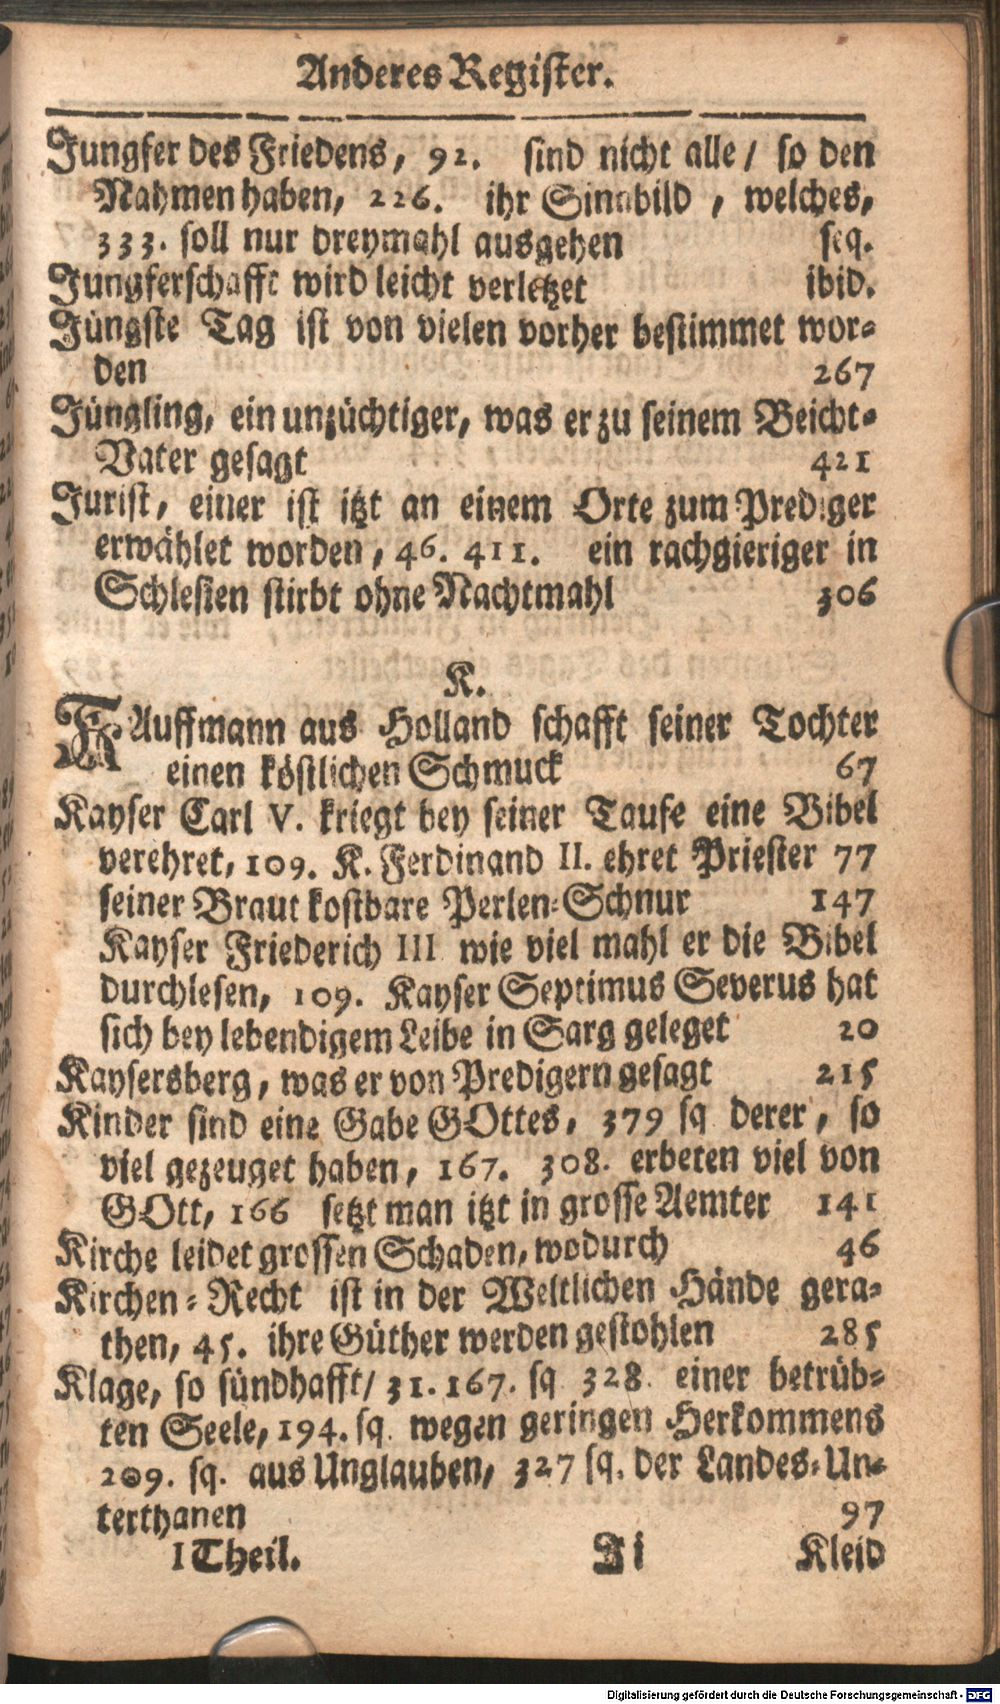 Anderes Register.
Jungfer des Friedens, 92. sind nicht alle / so den
Nahmen haben, 226. ihr Sinnbild, welches,
333. soll nur dreymahl ausgehen seq.
Jungferschafft wird leicht verletzet ibid.
Jüngste Tag ist von vielen vorher bestimmet wor-
den 267
Jüngling, ein unzüchtiger, was er zu seinem Beicht-
Vater gesagt 421
Jurist, einer ist itzt an einem Orte zum Prediger
erwählet worden, 46. 411. ein rachgieriger in
Schlesien stirbt ohne Nachtmahl 306
K.
KAuffmann aus Holland schafft seiner Tochter
einen köstlichen Schmuck 67
Kayser Carl V. kriegt bey seiner Taufe eine Bibel
verehret, 109. K. Ferdinand II. ehret Priester 77
seiner Braut kostbare Perlen-Schnur 147
Kayser Friederich III wie viel mahl er die Bibel
durchlesen, 109. Kayser Septimus Severus hat
sich bey lebendigem Leibe in Sarg geleget 20
Kaysersberg, was er von Predigern gesagt 215
Kinder sind eine Gabe GOttes, 379 sq derer, so
viel gezeuget haben, 167. 308. erbeten viel von
GOtt, 166 setzt man itzt in grosse Aemter 141
Kirche leidet grossen Schaden, wodurch 46
Kirchen-Recht ist in der Weltlichen Hände gera-
then, 45. ihre Güther werden gestohlen 285
Klage, so sündhafft / 31. 167. sq 328. einer betrüb-
ten Seele, 194. sq. wegen geringen Herkommens
209. sq. aus Unglauben, 327 sq. der Landes-Un-
terthanen 97
I Theil. Ii Kleid
Digitalisierung gefördert durch die Deutsche Forschungsgemeinschaft - DFG